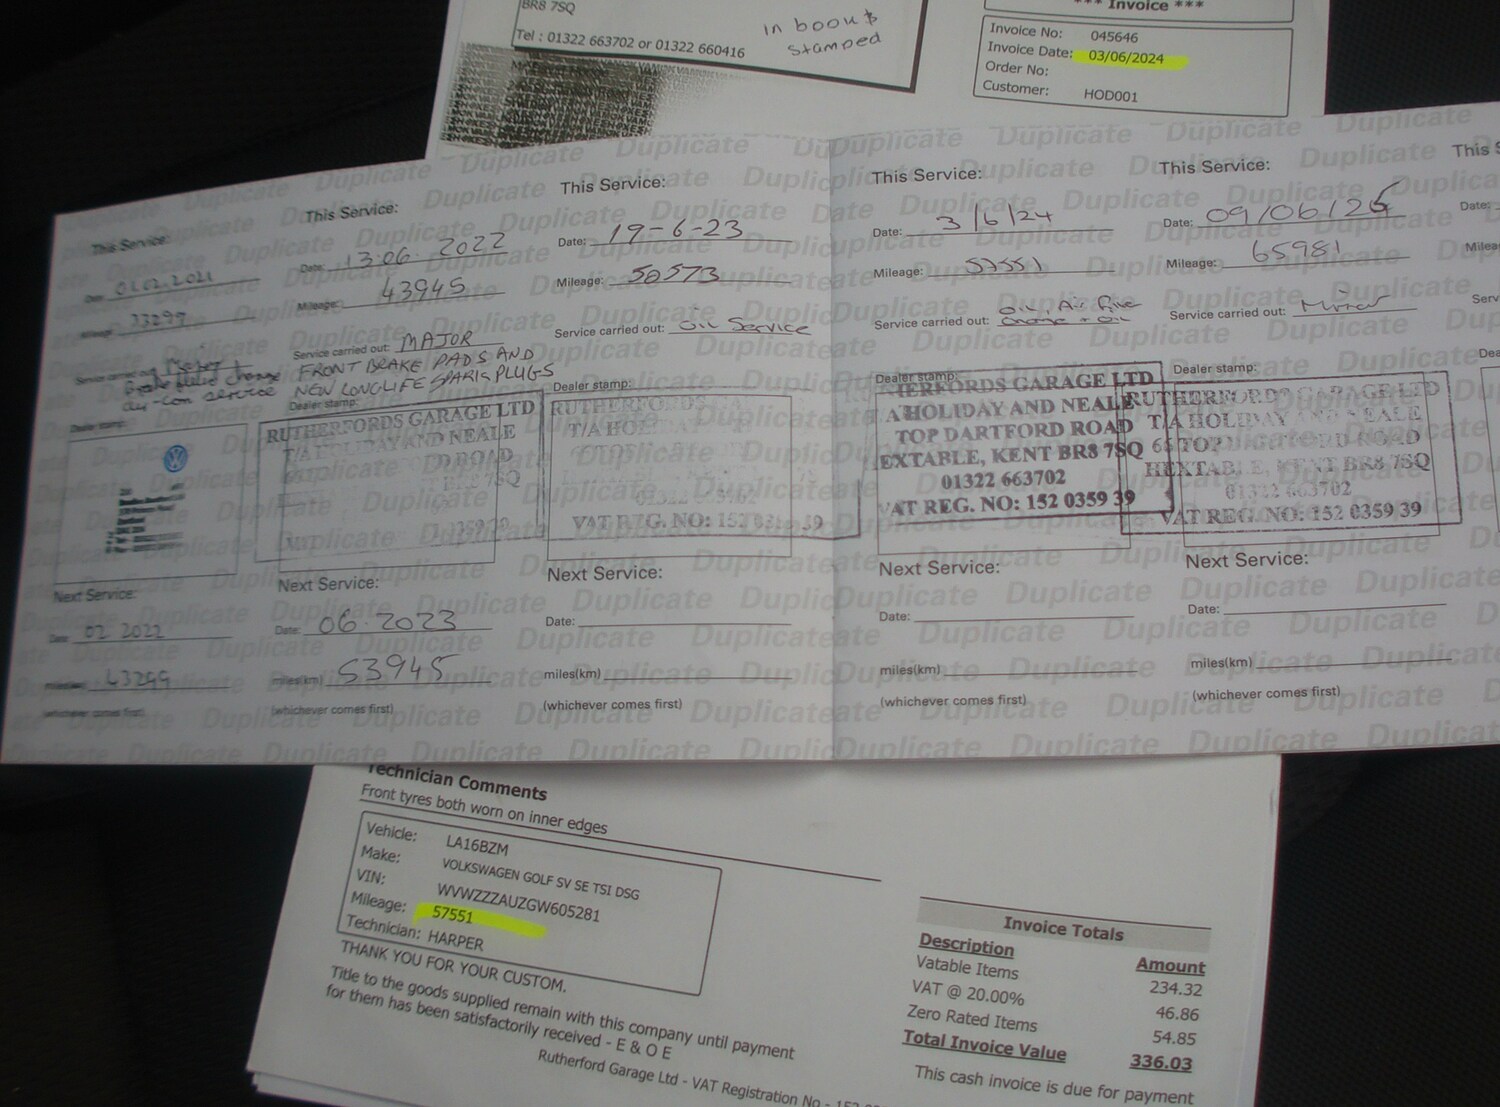 BR8 7SQ
Tel : 01322 663702 or 01322 660416
in book &
stamped
*** Invoice ***
Invoice No: 045646
Invoice Date: 03/06/2024
Order No:
Customer: HOD001
This Service:
Date: 01.02.2021
Mileage: 33299
Service carried out:
Brake fluid change
air-con service
Dealer stamp:
Next Service:
Date: 02 2022
miles(km) 43299
(whichever comes first)
This Service:
Date: 13.06.2022
Mileage: 43945
Service carried out: MAJOR
FRONT BRAKE PADS AND
NEW LONGLIFE SPARK PLUGS
Dealer stamp:
RUTHERFORDS GARAGE LTD
T/A HOLIDAY AND NEALE
ROAD
7SQ
0359 39
Next Service:
Date: 06.2023
miles(km) 53945
(whichever comes first)
This Service:
Date: 19-6-23
Mileage: 50573
Service carried out: Oil Service
Dealer stamp:
RUTHERFORDS
T/A HO
VAT REG. NO: 152 0359 39
Next Service:
Date:
miles(km)
(whichever comes first)
This Service:
Date: 3/6/24
Mileage: 57551
Service carried out: Oil, Air
Dealer stamp:
HERFORDS GARAGE LTD
A HOLIDAY AND NEALE
TOP DARTFORD ROAD
EXTABLE, KENT BR8 7SQ
01322 663702
VAT REG. NO: 152 0359 39
Next Service:
Date:
miles(km)
(whichever comes first)
This Service:
Date: 09/06/26
Mileage: 65981
Service carried out:
Dealer stamp:
RUTHERFORDS GARAGE LTD
T/A HOLIDAY AND NEALE
TOP DARTFORD ROAD
HEXTABLE, KENT BR8 7SQ
01322 663702
VAT REG. NO: 152 0359 39
Next Service:
Date:
miles(km)
(whichever comes first)
This S
Date:
Milea
Serv
Dea
Duplicate
Technician Comments
Front tyres both worn on inner edges
Vehicle: LA16BZM
Make: VOLKSWAGEN GOLF SV SE TSI DSG
VIN: WVWZZZAUZGW605281
Mileage: 57551
Technician: HARPER
THANK YOU FOR YOUR CUSTOM.
Title to the goods supplied remain with this company until payment
for them has been satisfactorily received - E & O E
Rutherford Garage Ltd - VAT Registration No - 152
Invoice Totals
Description Amount
Vatable Items 234.32
VAT @ 20.00% 46.86
Zero Rated Items 54.85
Total Invoice Value 336.03
This cash invoice is due for payment